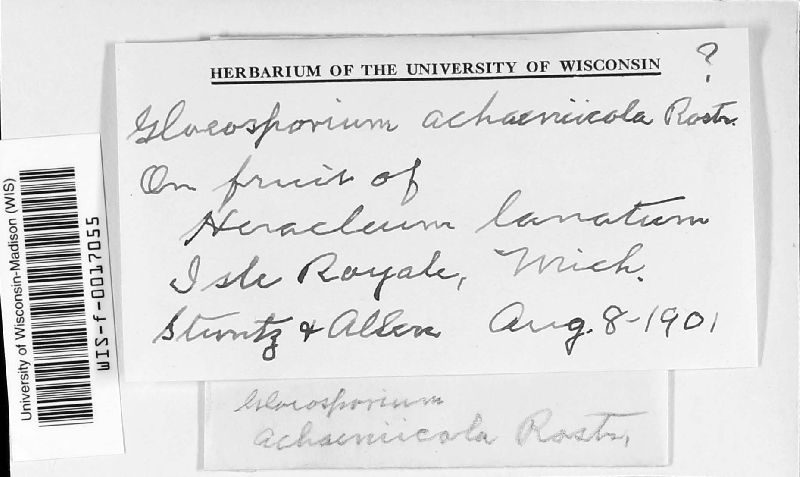 HERBARIUM OF THE UNIVERSITY OF WISCONSIN ?
Gloeosporium achaeniicola Rostr.
On fruit of
Heracleum lanatum
Isle Royale, Mich.
Stuntz & Allen Aug. 8-1901
University of Wisconsin-Madison (WIS)
WIS-f-0017055
Gloeosporium
achaeniicola Rostr.